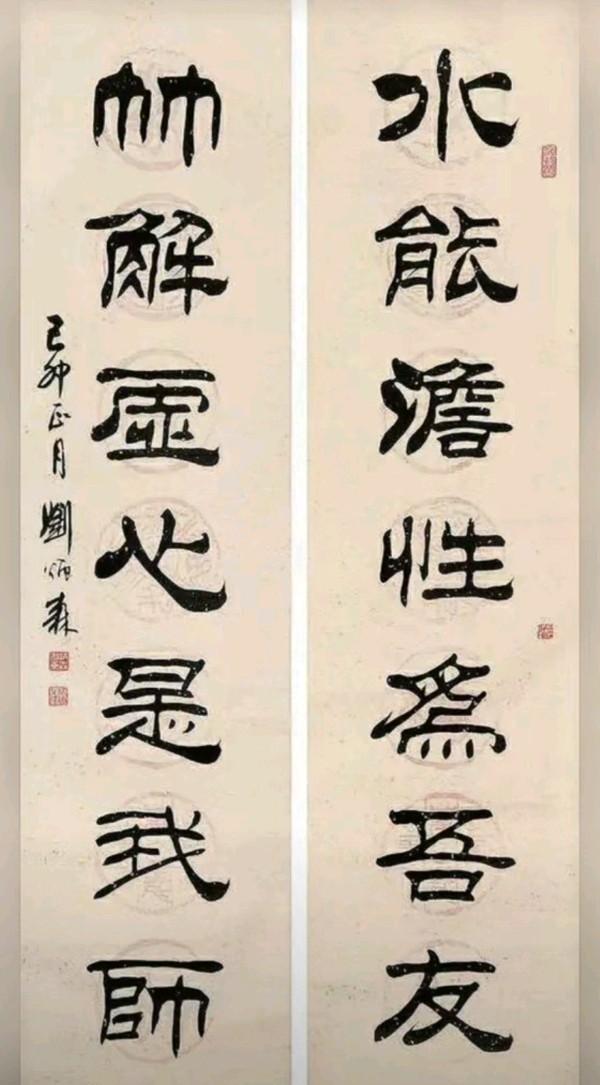 水能澹性爲吾友
竹解虛心是我師
己卯正月劉炳森